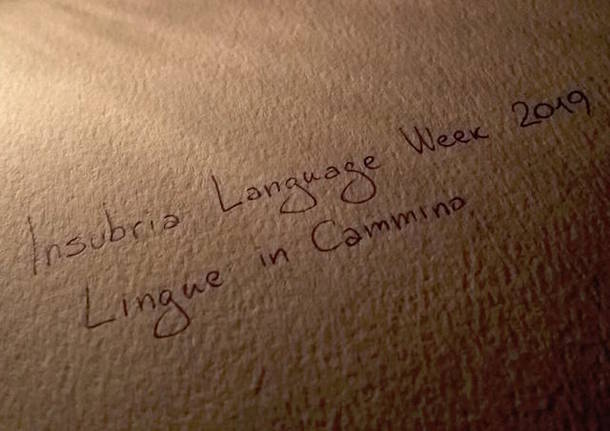 Insubria Language Week 2019
Lingue in Cammino